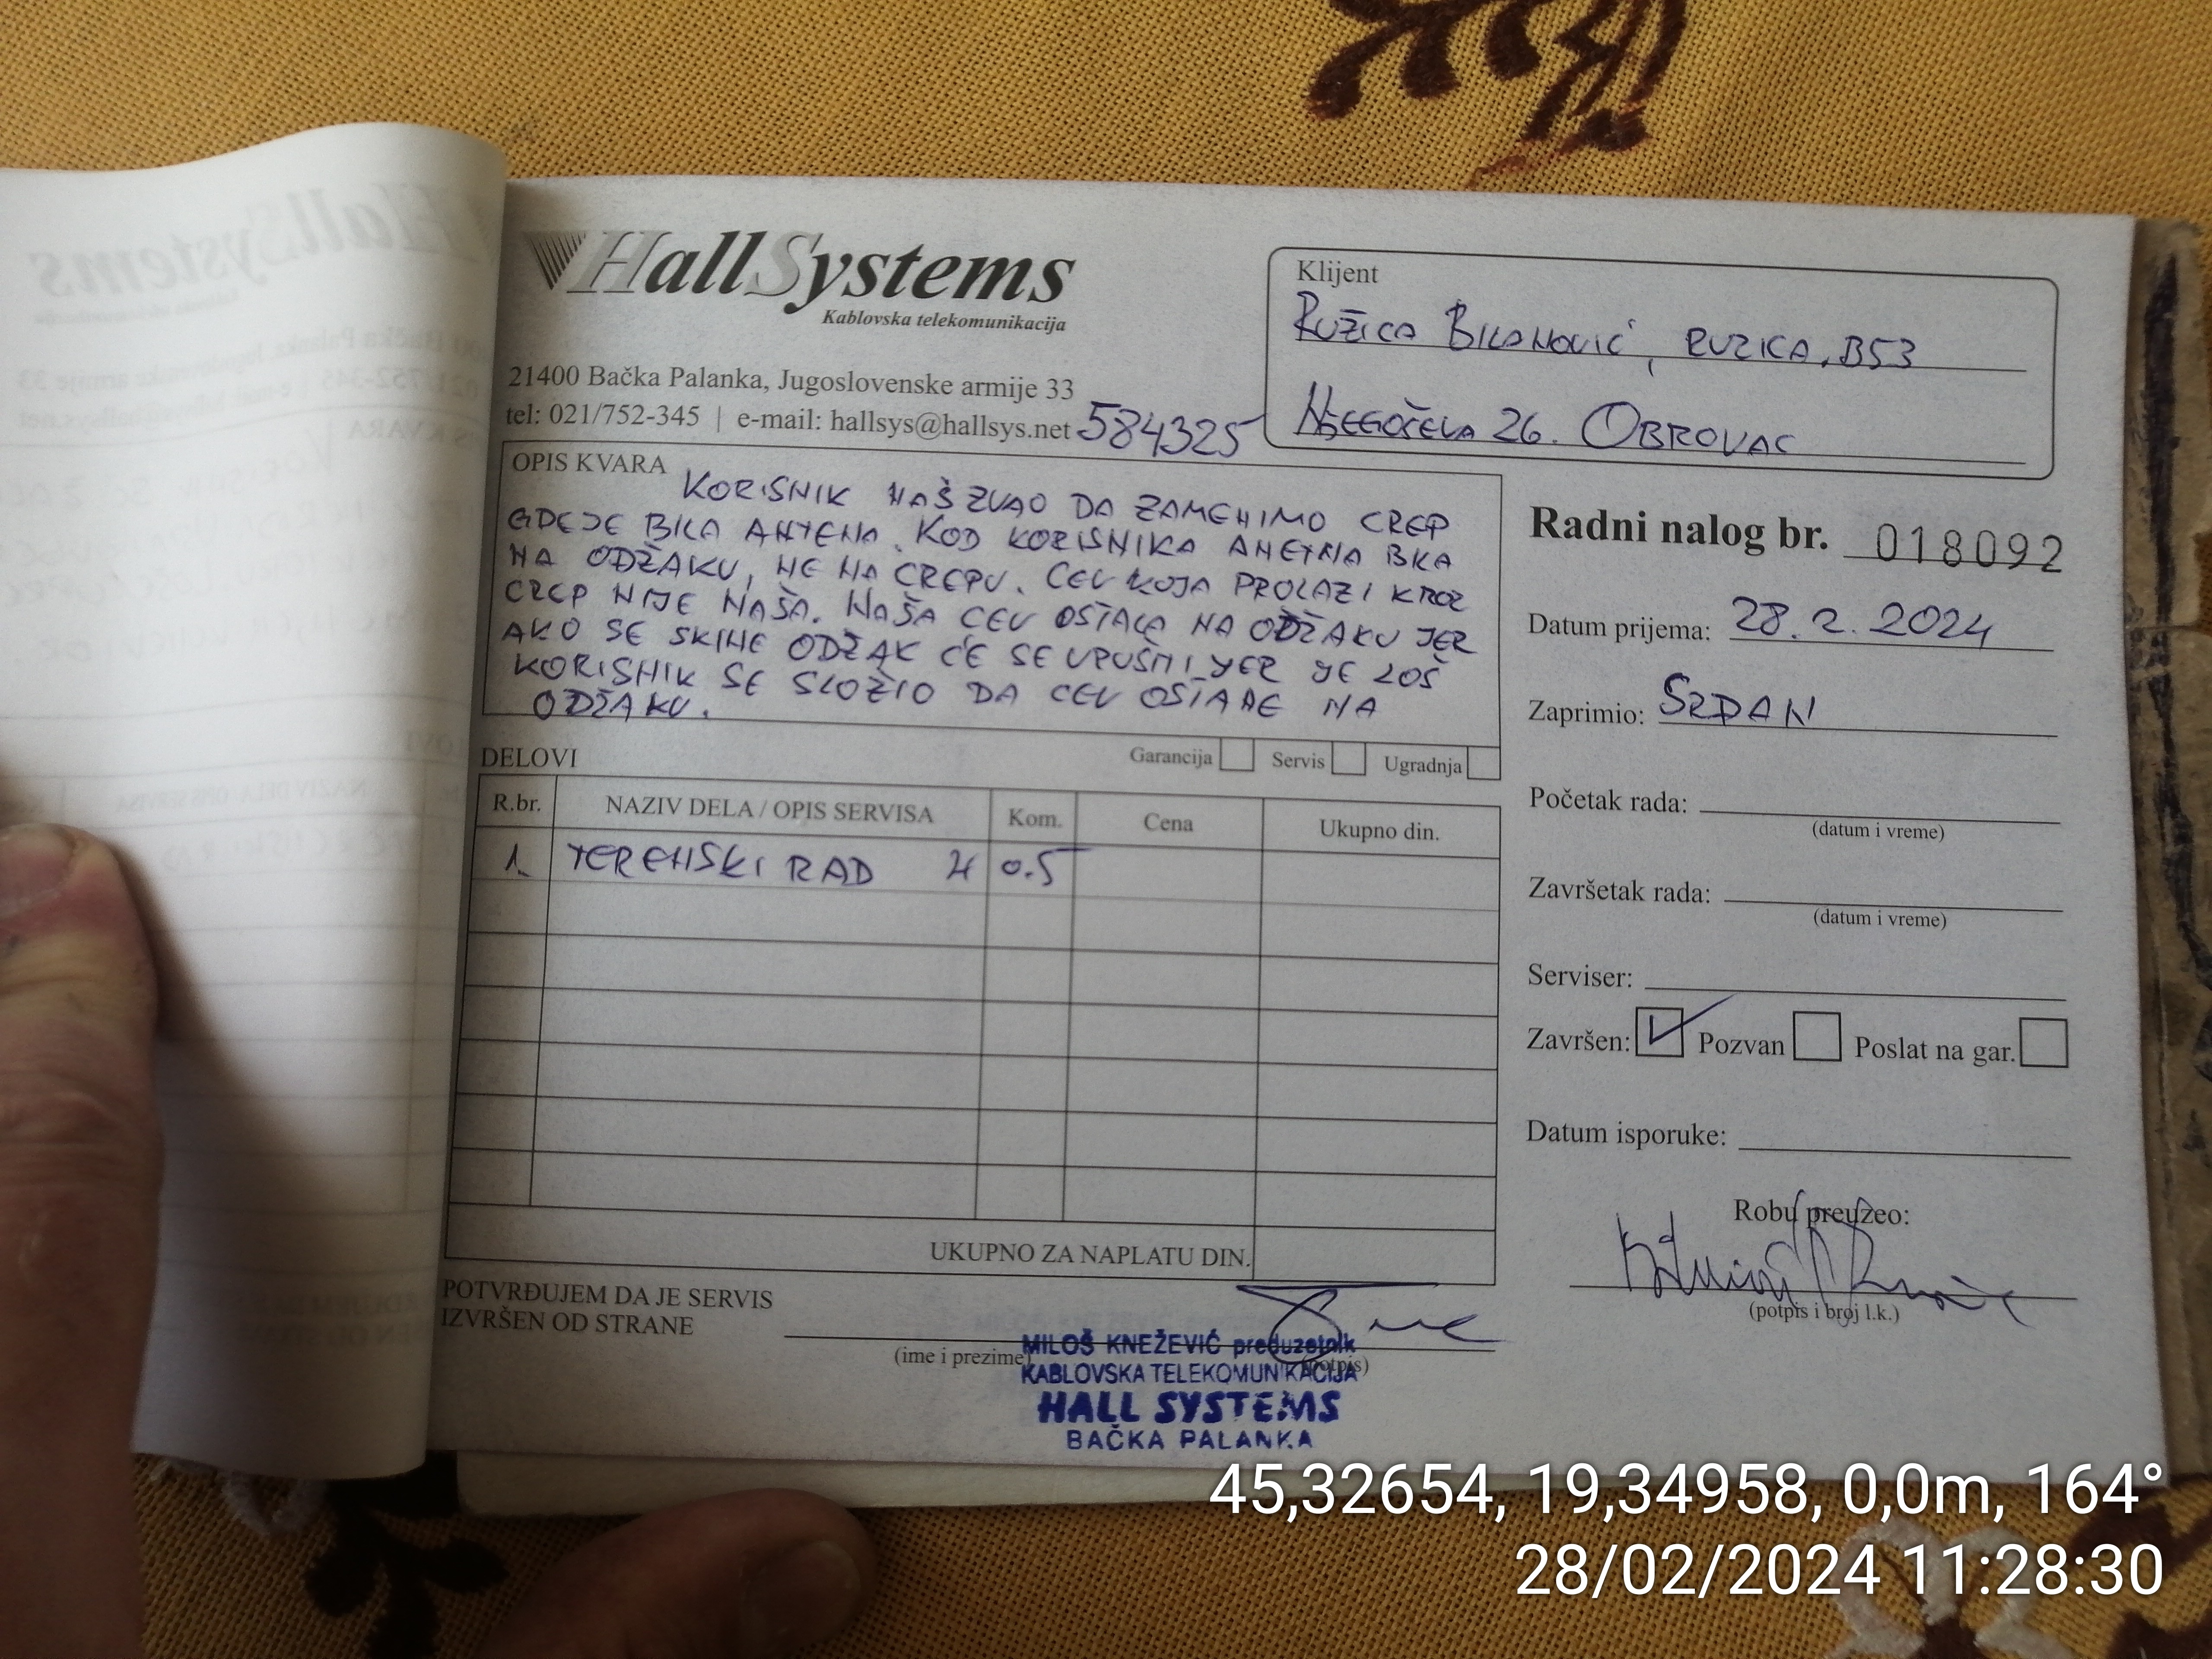 HallSystems
Kablovska telekomunikacija
21400 Bačka Palanka, Jugoslovenske armije 33
tel: 021/752-345 | e-mail: hallsys@hallsys.net
584325
Klijent
RUŽICA BILANOVIĆ, RUZICA.B53
NJEGOŠEVA 26. OBROVAC
OPIS KVARA
KORISNIK NAŠ ZVAO DA ZAMENIMO CREP
GDE JE BILA ANTENA. KOD KORISNIKA ANETNA BILA
NA ODŽAKU, NE NA CREPU. CEV KOJA PROLAZI KROZ
CREP NIJE NAŠA. NAŠA CEV OSTALA NA ODŽAKU JER
AKO SE SKINE ODŽAK ĆE SE URUŠITI JER JE LOŠ
KORISNIK SE SLOŽIO DA CEV OSTANE NA
ODŽAKU.
Garancija Servis Ugradnja
DELOVI
R.br. NAZIV DELA / OPIS SERVISA Kom. Cena Ukupno din.
1. TERENSKI RAD H 0.5
UKUPNO ZA NAPLATU DIN.
POTVRĐUJEM DA JE SERVIS
IZVRŠEN OD STRANE
(ime i prezime) (potpis)
MILOŠ KNEŽEVIĆ preduzetnik
KABLOVSKA TELEKOMUNIKACIJA
HALL SYSTEMS
BAČKA PALANKA
Radni nalog br. 018092
Datum prijema: 28.2.2024
Zaprimio: SRĐAN
Početak rada:
(datum i vreme)
Završetak rada:
(datum i vreme)
Serviser:
Završen: Pozvan Poslat na gar.
Datum isporuke:
Robu preuzeo:
(potpis i broj l.k.)
45,32654, 19,34958, 0,0m, 164°
28/02/2024 11:28:30